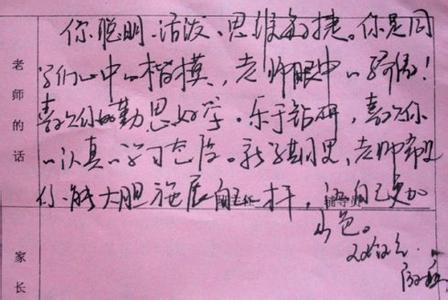 老师的话
你聪明、活泼、思维敏捷。你是同
学们心中的楷模，老师眼中的骄傲！
喜欢你的勤思好学、乐于钻研，喜欢你
的认真的学习态度。新学期里，老师希望
你能大胆施展自己 才，让自己更加
出色。
家长